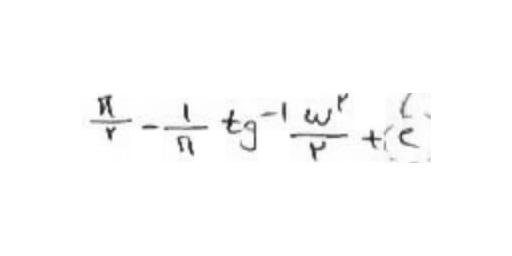 π/۲ - ۱/π tg⁻¹ ω^۲/۲ + c